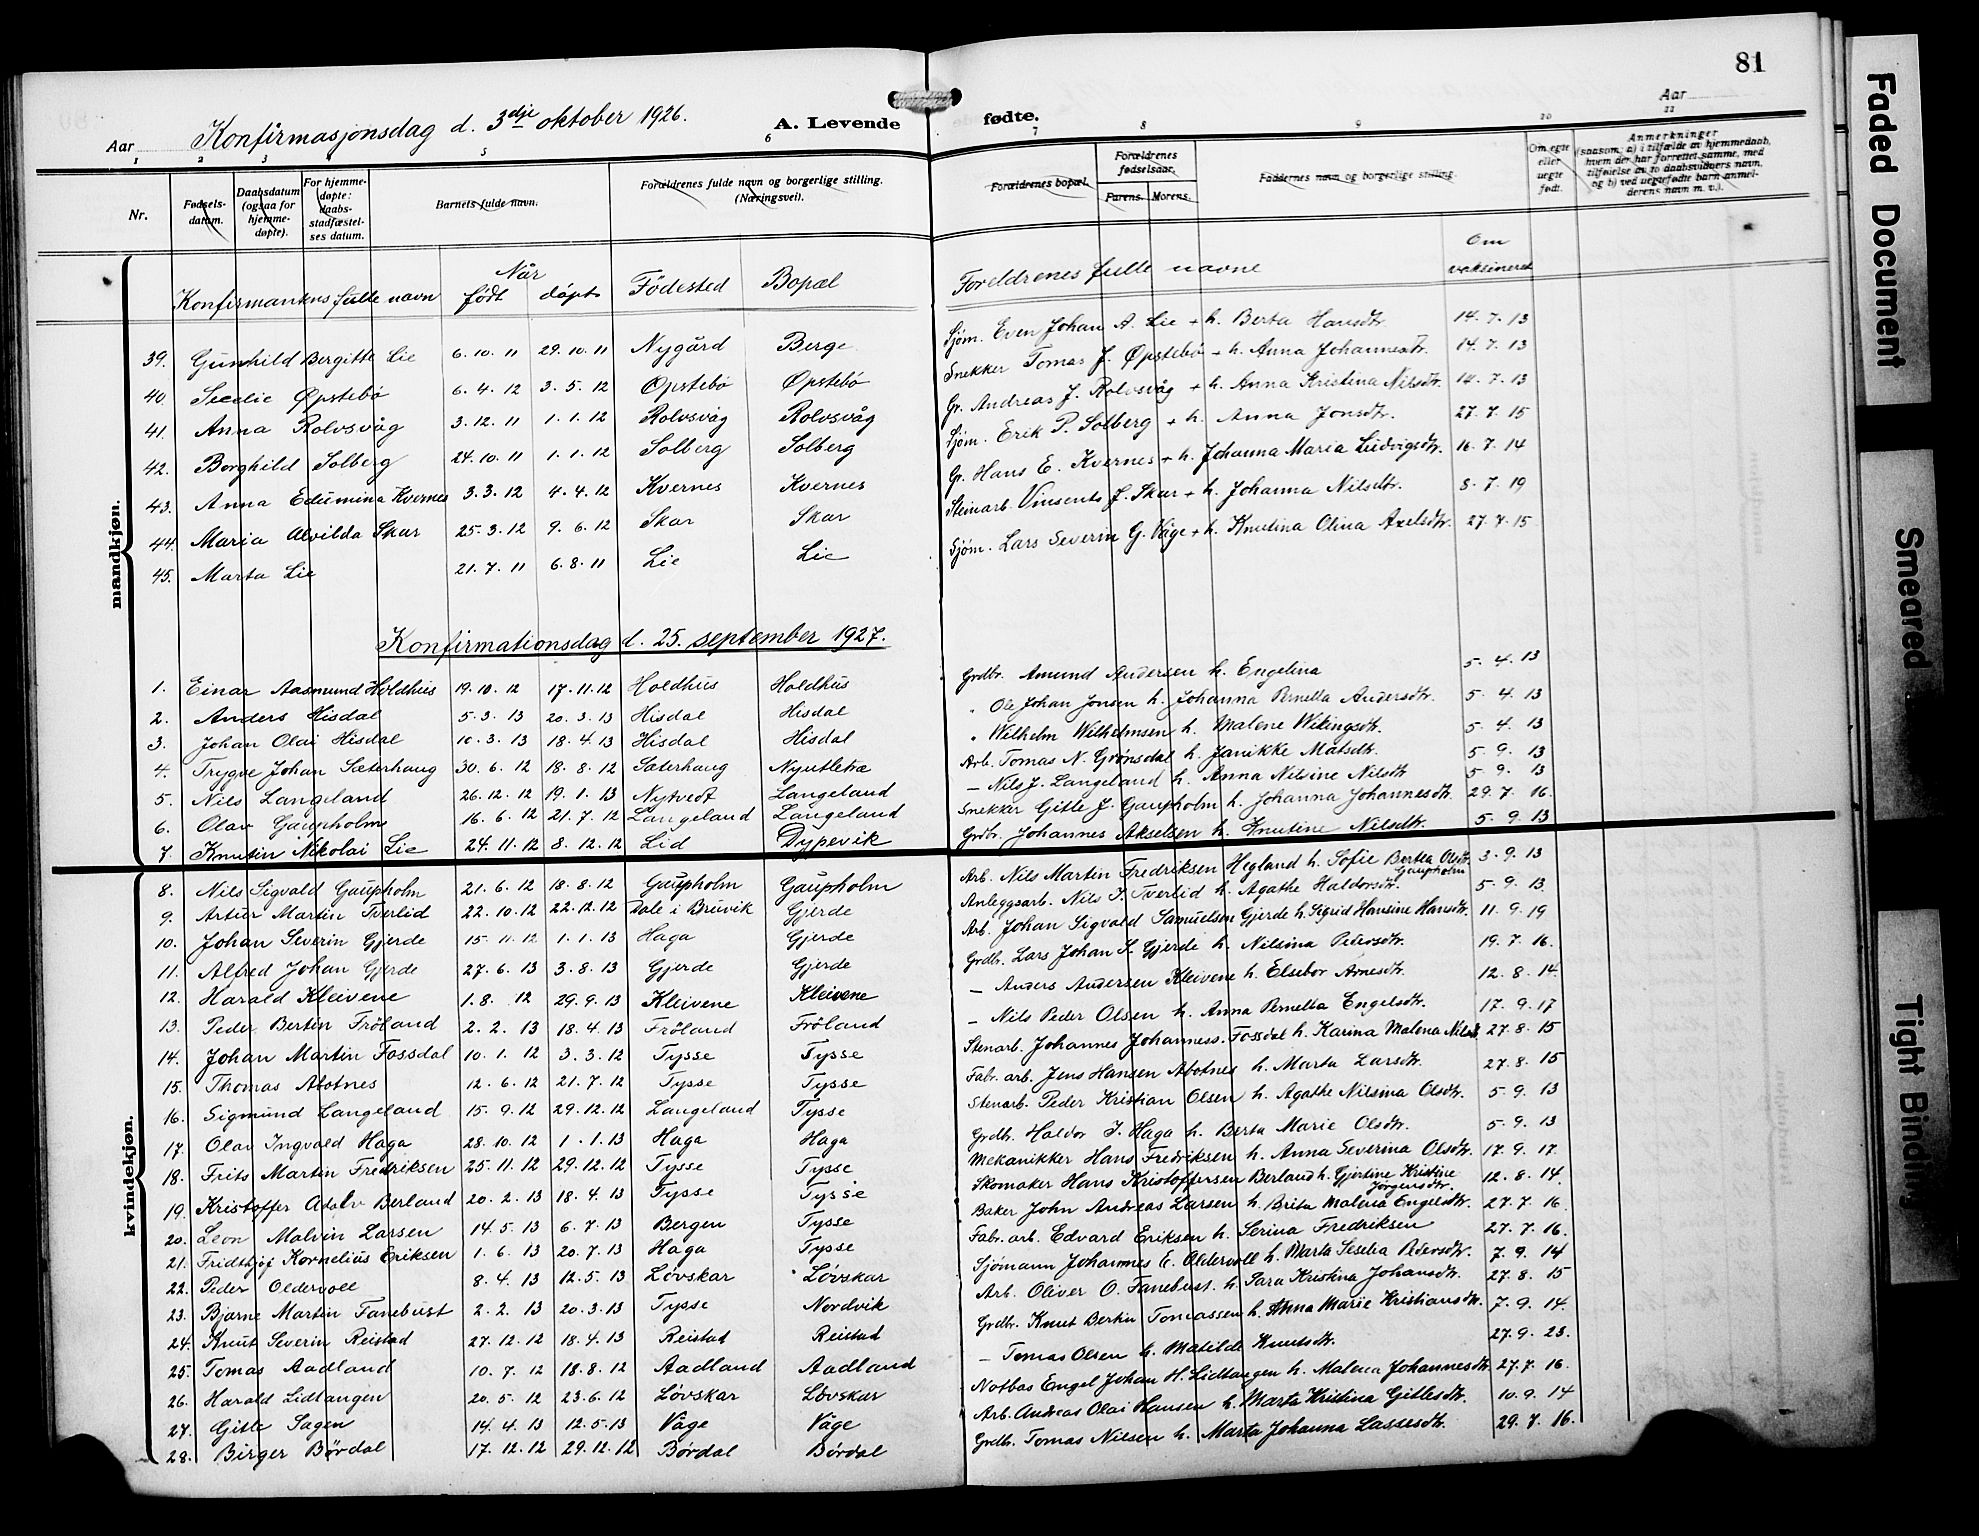 81
Konfirmasjonsdag d. 3dje oktober 1926.
Aar
A. Levende
fødte.
Aar
1 2 3 4 5 6 7 8 9 10 11
Nr.
Fødsels-datum.
Daabsdatum (ogsaa for hjemme-døpte).
For hjemme-døpte: daabs-stadfæstel-ses datum.
Barnets fulde navn.
Forældrenes fulde navn og borgerlige stilling. (Næringsvei).
Forældrenes bopæl.
Forældrenes fødselsaar.
Farens. Morens.
Faddernes navn og borgerlige stilling.
Om egte eller uegte født.
Anmerkninger
(saasom: a) i tilfælde av hjemmedaab, hvem der har forrettet samme, med tilføielse av to daabsvidners navn, og b) ved uegtefødte barn anmel-derens navn m. v.).
Konfirmantens fulle navn Når født døpt Födested Bopæl Foreldrenes fulle navne Om vaksineret
mandkjøn.
39. Gunhild Bergitte Lie 6.10.11 29.10.11 Nygård Berge Sjøm. Even Johan A. Lie + h. Berta Hansdtr. 14.7.13
40. Secelie Øpstebø 6.4.12 3.5.12 Øpstebø Øpstebø Snekker Tomas J. Øpstebø + h. Anna Johannesdtr. 14.7.13
41. Anna Rolvsvåg 3.12.11 1.1.12 Rolvsvåg Rolvsvåg Gr. Andreas J. Rolvsvåg + h. Anna Kristina Nilsdtr. 14.7.13
42. Borghild Solberg 24.10.11 1.1.12 Solberg Solberg Sjøm. Erik P. Solberg + h. Anna Jonsdtr. 27.7.15
43. Anna Edumina Kvernes 3.3.12 4.4.12 Kvernes Kvernes Gr. Hans E. Kvernes + h. Johanna Maria Ludvigsdtr. 16.7.14
44. Maria Alvilda Skar 25.3.12 9.6.12 Skar Skar Steinarb. Vinsents J. Skar + h. Johanna Nilsdtr. 8.7.19
45. Marta Lie 21.7.11 6.8.11 Lie Lie Sjøm. Lars Severin G. Våge + h. Knutina Olina Axelsdtr. 27.7.15
Konfirmationsdag d. 25. september 1927.
1. Einar Aasmund Holdhus 19.10.12 17.11.12 Holdhus Holdhus Grdbr. Amund Andersen h. Engelina 5.4.13
2. Anders Hisdal 5.3.13 20.3.13 Hisdal Hisdal " Ole Johan Jonsen h. Johanna Pernella Andersdtr. 5.4.13
3. Johan Olai Hisdal 10.3.13 18.4.13 Hisdal Hisdal " Wilhelm Wilhelmsen h. Malene Wikingsdtr. 5.4.13
4. Trygve Johan Sæterhaug 30.6.12 18.8.12 Sæterhaug Arb. Tomas N. Grønsdal h. Janikke Matsdtr. 5.9.13
5. Nils Langeland 26.12.12 19.1.13 Nytvedt Langeland — Nils J. Langeland h. Anna Nilsine Nilsdtr 5.9.13
6. Olav Gaupholm 16.6.12 21.7.12 Langeland Langeland Snekker Gitle J. Gaupholm h. Johanna Johannesdtr. 29.7.16.
7. Knutin Nikolai Lie 24.11.12 8.12.12 Lid Dypevik Grdbr. Johannes Akselsen h. Knutine Nilsdtr. 5.9.13
kvindekjøn.
8. Nils Sigvald Gaupholm 21.6.12 18.8.12 Gaupholm Gaupholm Arb. Nils Martin Fredriksen Hegland h. Sofie Bertea Olsdtr. Gaupholm 3.9.13
9. Artur Martin Tverlid 22.10.12 22.12.12 Dale i Bruvik Gjerde Anleggsarb. Nils J. Tverlid h. Agathe Haldorsdtr. 5.9.13
10. Johan Severin Gjerde 15.11.12 1.1.13 Haga Gjerde Arb. Johan Sigvald Samuelsen Gjerde h. Sigrid Hansine Hansdtr. 11.9.19
11. Alfred Johan Gjerde 27.6.13 3.8.13 Gjerde Gjerde Grdbr. Lars Johan S. Gjerde h. Nilsina Pedersdtr. 19.7.16.
12. Harald Kleivene 1.8.12 29.9.13 Kleivene Kleivene — Anders Andersen Kleivene h. Elsebor Arnesdtr. 12.8.14.
13. Peder Bertin Fröland 2.2.13 18.4.13 Fröland Fröland — Nils Peder Olsen h. Anna Pernella Engelsdtr. 17.9.17
14. Johan Martin Fossdal 10.1.12 3.3.12 Tysse Tysse Stenarb. Johannes Johanness. Fossdal h. Karina Malena Nilsd. 27.8.15
15. Thomas Abotnes 12.6.12 21.7.12 Tysse Tysse Fabr. arb. Jens Hansen Abotnes h. Marta Larsdtr. 27.8.15
16. Sigmund Langeland 15.9.12 29.12.12 Langeland Tysse Stenarb. Peder Kristian Olsen h. Agathe Nilsina Olsdtr. 5.9.13
17. Olav Ingvald Haga 28.10.12 1.1.13 Haga Haga Grdbr. Haldor J. Haga h. Berta Marie Olsdtr. 5.9.13
18. Frits Martin Fredriksen 25.11.12 29.12.12 Tysse Tysse Mekanikker Hans Fredriksen h. Anna Severina Olsdtr. 17.9.17.
19. Kristoffer Adolv Berland 20.2.13 18.4.13 Tysse Tysse Skomaker Hans Kristoffersen Berland h. Gjertine Kristine Jörgensdtr. 12.8.14.
20. Leon Malvin Larsen 14.5.13 6.7.13 Bergen Tysse Baker John Andreas Larsen h. Brita Malena Engelsdtr. 27.7.16.
21. Fridthjof Kornelius Eriksen 1.6.13 20.7.13 Haga Tysse Fabr. arb. Edvard Eriksen h. Serina Fredriksen 27.7.16.
22. Peder Oldervoll 8.4.13 12.5.13 Løvskar Løvskar Sjømann Johannes E. Oldervoll h. Marta Seselia Pedersdtr. 7.9.14
23. Bjarne Martin Fanebust 2.2.13 20.3.13 Tysse Nordvik Arb. Oliver O. Fanebust. h. Sara Kristina Johansdtr. 27.8.15
24. Knut Severin Reistad 27.12.12 18.4.13 Reistad Reistad Grdbr. Knut Bertin Tomassen h. Anna Marie Kristiansdtr. 7.9.14.
25. Tomas Aadland 10.7.12 18.8.12 Aadland Aadland — Tomas Olsen h. Matilde Knutsdtr. 27.9.23.
26. Harald Lidtangen 20.5.12 23.6.12 Løvskar Løvskar Notbas Engel Johan H. Lidtangen h. Malena Johannesdtr. 27.7.16.
27. Gitle Sagen 14.4.13 12.5.13 Våge Våge Arb. Andreas Olai Hansen h. Marta Kristina Gitlesdtr. 10.9.14
28. Birger Børdal 17.12.12 29.12.12 Børdal Børdal Grdbr. Tomas Nilsen h. Marta Johanna Lassesdtr. 29.7.16.
Faded Document
Smeared
Tight Binding